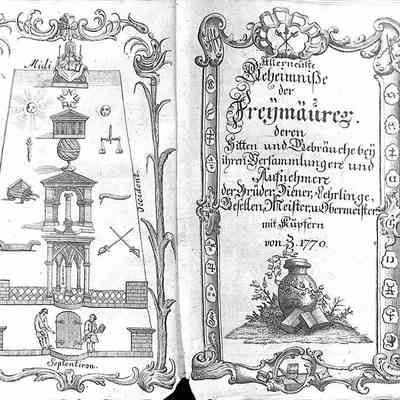 Midi
Occident.
Septentrion.
Allerneuste
Geheimniße
der
Freÿmäureÿ.
deren
Sitten und Gebräuche beÿ
ihren Versammlungen und
Aufnehmen
der Brüder, Diener, Lehrlinge,
Gesellen, Meister, u. Obermeister
mit Kupfern
von J. 1770.